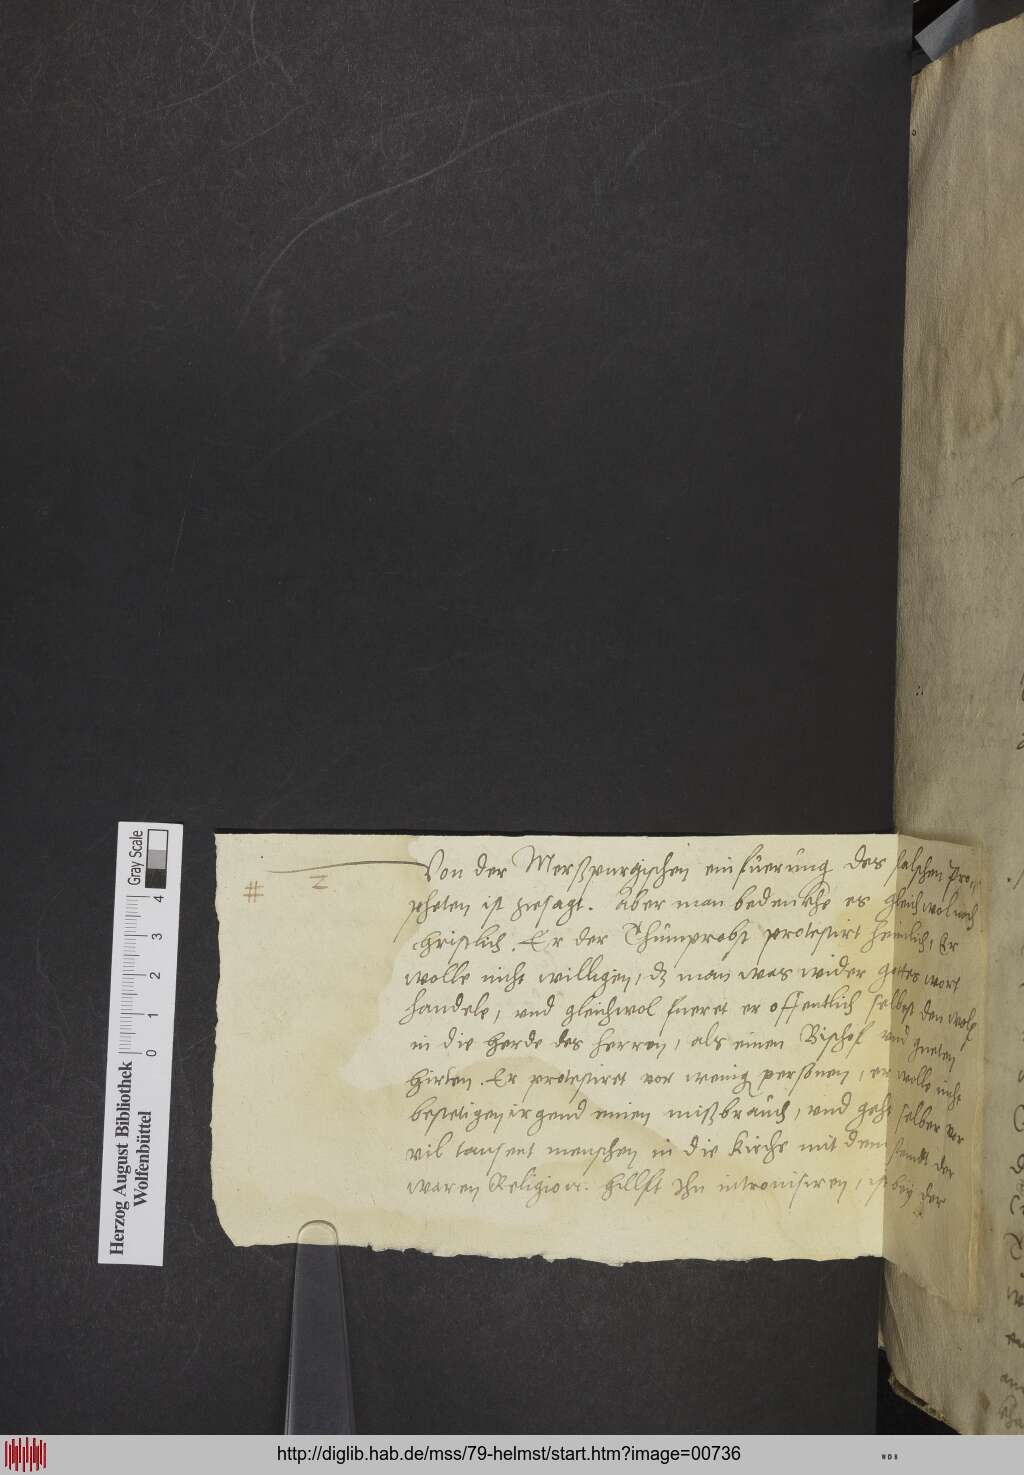 # 2
Von der Merßpurgischen einfüerung des falschen Pro-
pheten ist gesagt. Aber man bedenkhe es gleichwol noch
christlich. Er der Thumprobst protestirt heimlich, Er
wolle nicht willigen, dz man was wider gottes wort
handele, vnd gleichwol fueret er offentlich selbest den wolf
in die herde des herren, als einen Bischof vnd gueten
hirten. Er protestiret vor wenig personen, er wolle nicht
bestetigen irgend einen mißbrauch, vnd gehet selber vor
vil tausent menschen in die kirche mit dem feindt der
waren Religion. hillfft Ihn intronisiren, ist bey der
Herzog August Bibliothek
Wolfenbüttel
Gray Scale
0 1 2 3 4
http://diglib.hab.de/mss/79-helmst/start.htm?image=00736
WDB